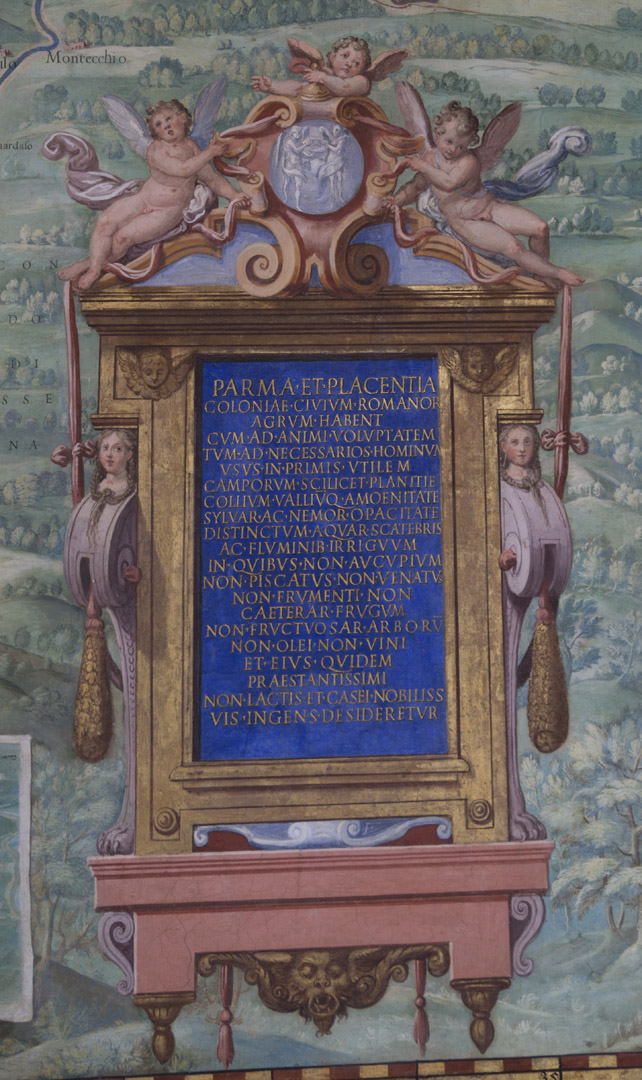 Montecchio
PARMA·ET·PLACENTIA
COLONIAE·CIVIVM·ROMANOR
AGRVM·HABENT
CVM·AD·ANIMI·VOLVPTATEM
TVM·AD·NECESSARIOS·HOMINVM
VSVS·IN·PRIMIS·VTILEM
CAMPORVM·SCILICET·PLANITIE
COLLIVM·VALLIVQ·AMOENITATE
SYLVAR·AC·NEMOR·OPACITATE
DISTINCTVM·AQVAR·SCATEBRIS
AC·FLVMINIB·IRRIGVVM
IN·QVIBVS·NON·AVCVPIVM
NON·PISCATVS·NON·VENATVS
NON·FRVMENTI·NON
CAETERAR·FRVGVM
NON·FRVCTVOSAR·ARBORV̄
NON·OLEI·NON·VINI
ET·EIVS·QVIDEM
PRAESTANTISSIMI
NON·LACTIS·ET·CASEI·NOBILISS
VIS·INGENS·DESIDERETVR
C O N
D O
D I
S S E
N A